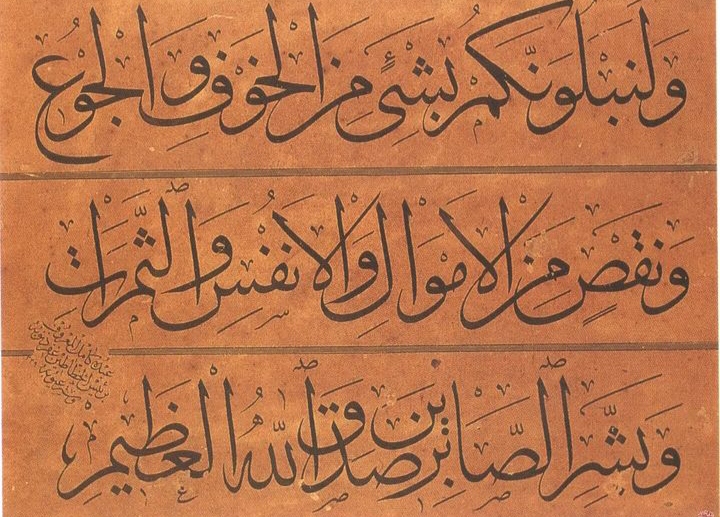 ولنبلونكم بشيء من الخوف والجوع
ونقص من الاموال والانفس والثمرات
وبشر الصابرين صدق الله العظيم